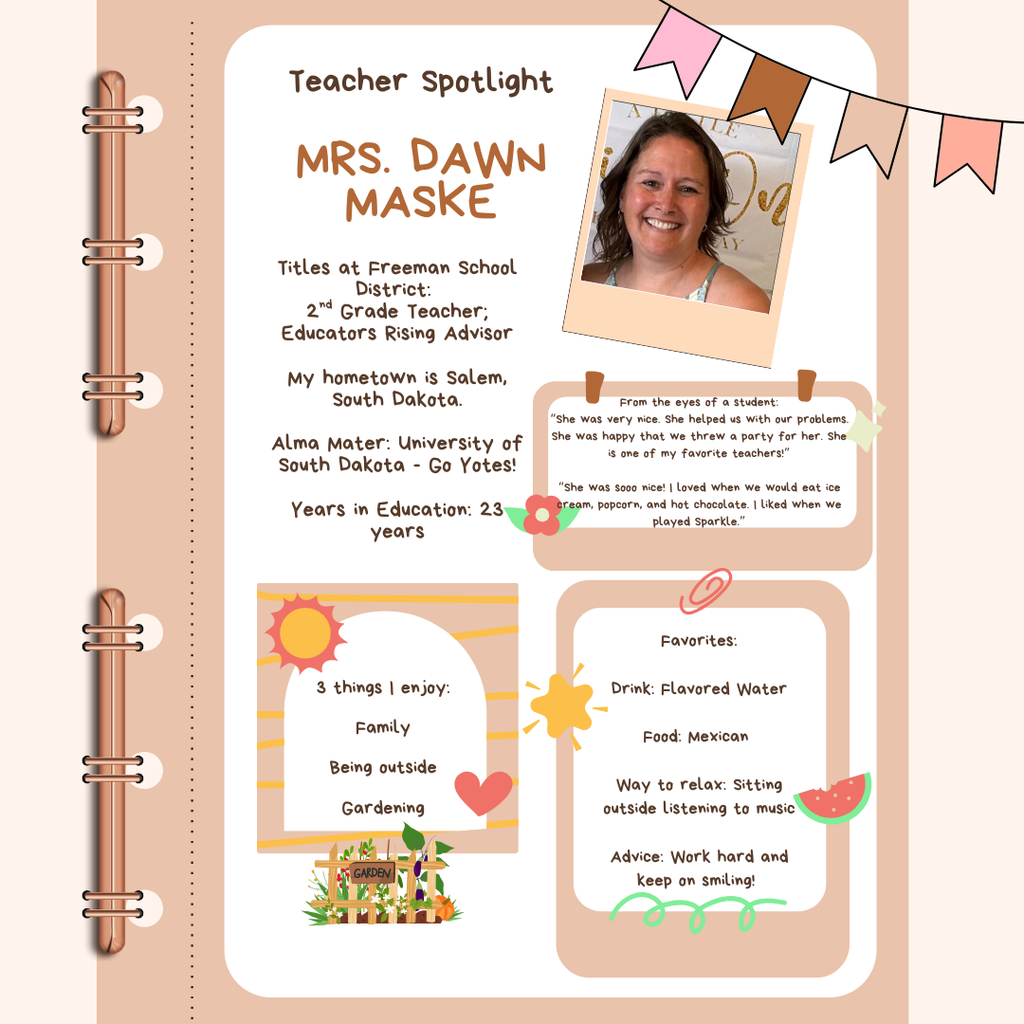 Teacher Spotlight
MRS. DAWN
MASKE
Titles at Freeman School
District:
2nd Grade Teacher;
Educators Rising Advisor
My hometown is Salem,
South Dakota.
Alma Mater: University of
South Dakota - Go Yotes!
Years in Education: 23
years
From the eyes of a student:
"She was very nice. She helped us with our problems.
She was happy that we threw a party for her. She
is one of my favorite teachers!"
"She was sooo nice! I loved when we would eat ice
cream, popcorn, and hot chocolate. I liked when we
played Sparkle."
3 things I enjoy:
Family
Being outside
Gardening
GARDEN
Favorites:
Drink: Flavored Water
Food: Mexican
Way to relax: Sitting
outside listening to music
Advice: Work hard and
keep on smiling!